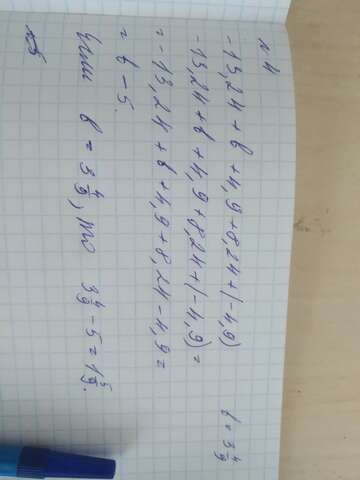 № 4
-13,24 + b + 4,9 + 8,24 + (-4,9)    b = 3 4/9
-13,24 + b + 4,9 + 8,24 + (-4,9) =
= -13,24 + b + 4,9 + 8,24 - 4,9 =
= b - 5.
Если b = 3 4/9, то 3 4/9 - 5 = 1 5/9.